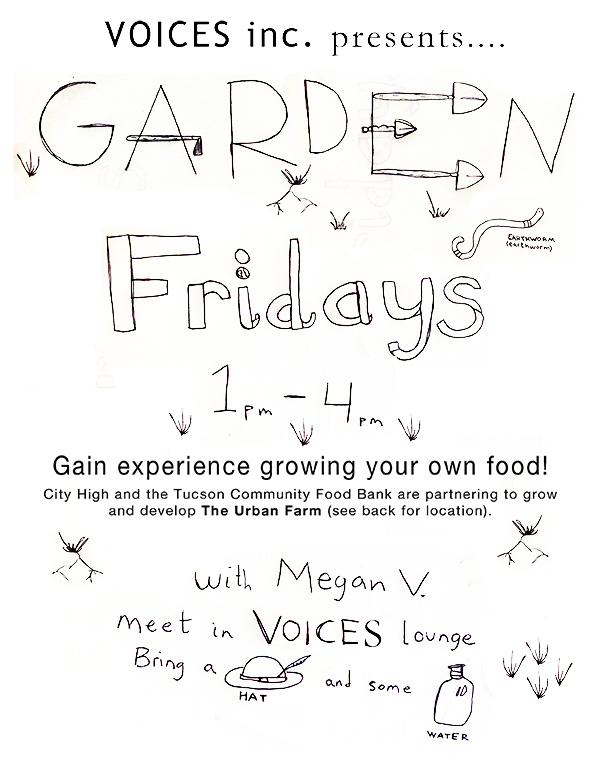 VOICES inc. presents....
GARDEN
EARTHWORM
(earthworm)
Fridays
1pm - 4pm
Gain experience growing your own food!
City High and the Tucson Community Food Bank are partnering to grow
and develop The Urban Farm (see back for location).
with Megan V.
meet in VOICES lounge
Bring a
and some
HAT
WATER